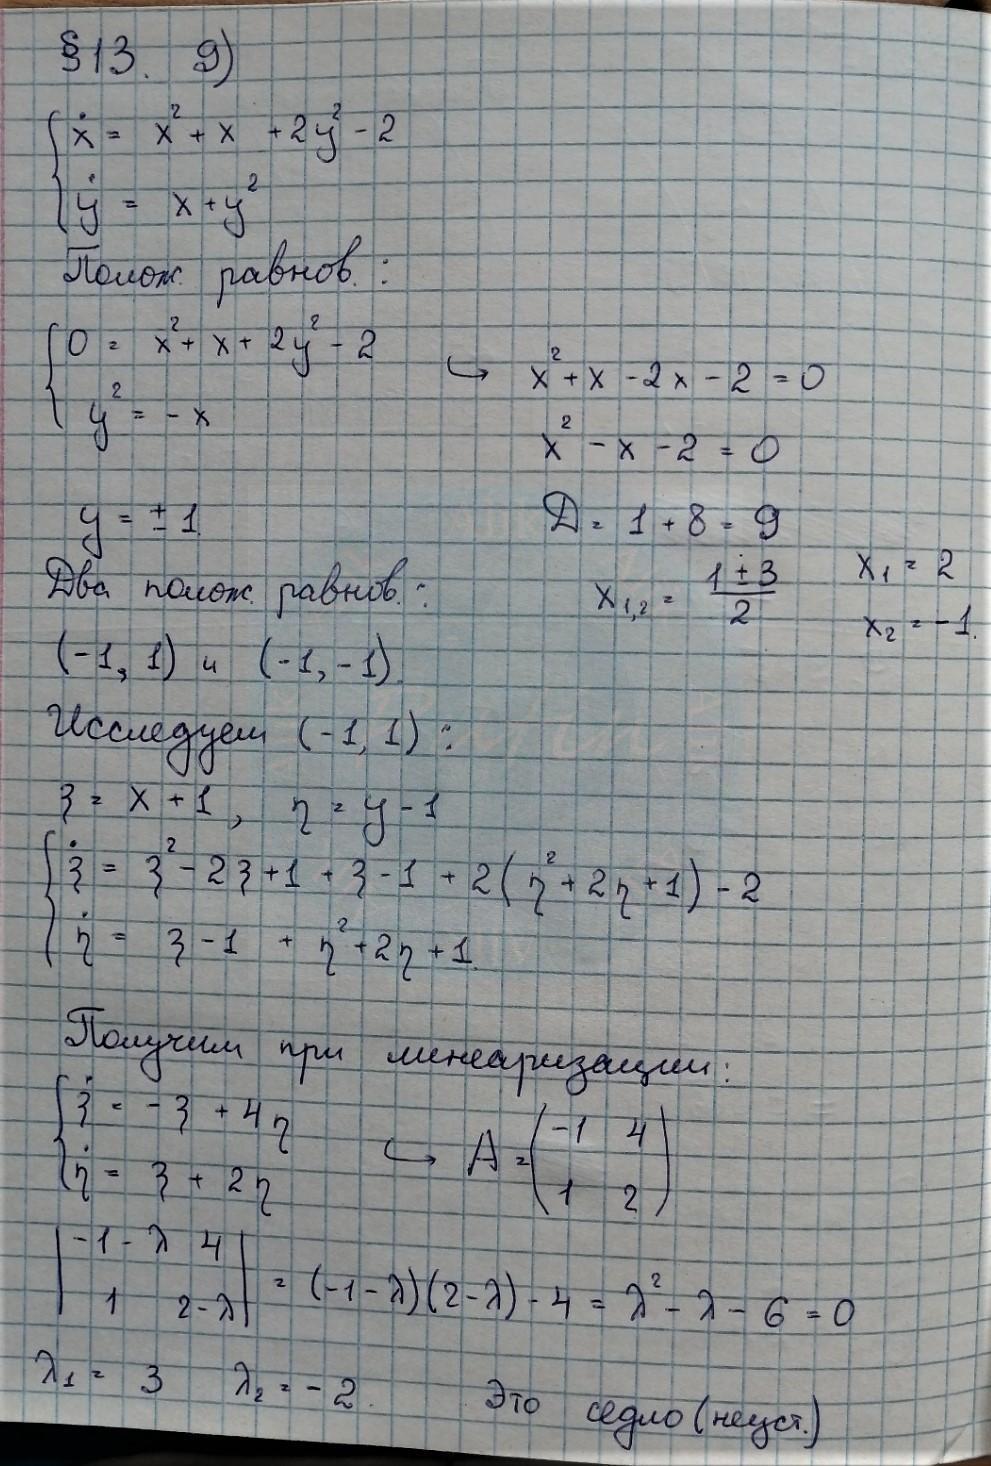 §13. 9)
ẋ = x² + x + 2y² - 2
ẏ = x + y²
Полож. равнов.:
0 = x² + x + 2y² - 2
y² = - x
↪ x² + x - 2x - 2 = 0
x² - x - 2 = 0
y = ± 1
D = 1 + 8 = 9
x₁,₂ = (1 ± 3)/2
x₁ = 2
x₂ = -1.
Два полож. равнов.:
(-1, 1) и (-1, -1).
Исследуем (-1, 1):
ξ = x + 1, η = y - 1
ξ̇ = ξ² - 2ξ + 1 + ξ - 1 + 2(η² + 2η + 1) - 2
η̇ = ξ - 1 + η² + 2η + 1.
Получим при линеаризации:
ξ̇ = - ξ + 4η
η̇ = ξ + 2η
↪ A = (-1 4
1 2)
|-1 - λ 4
1 2 - λ| = (-1 - λ)(2 - λ) - 4 = λ² - λ - 6 = 0
λ₁ = 3 λ₂ = -2. Это седло (неуст.)